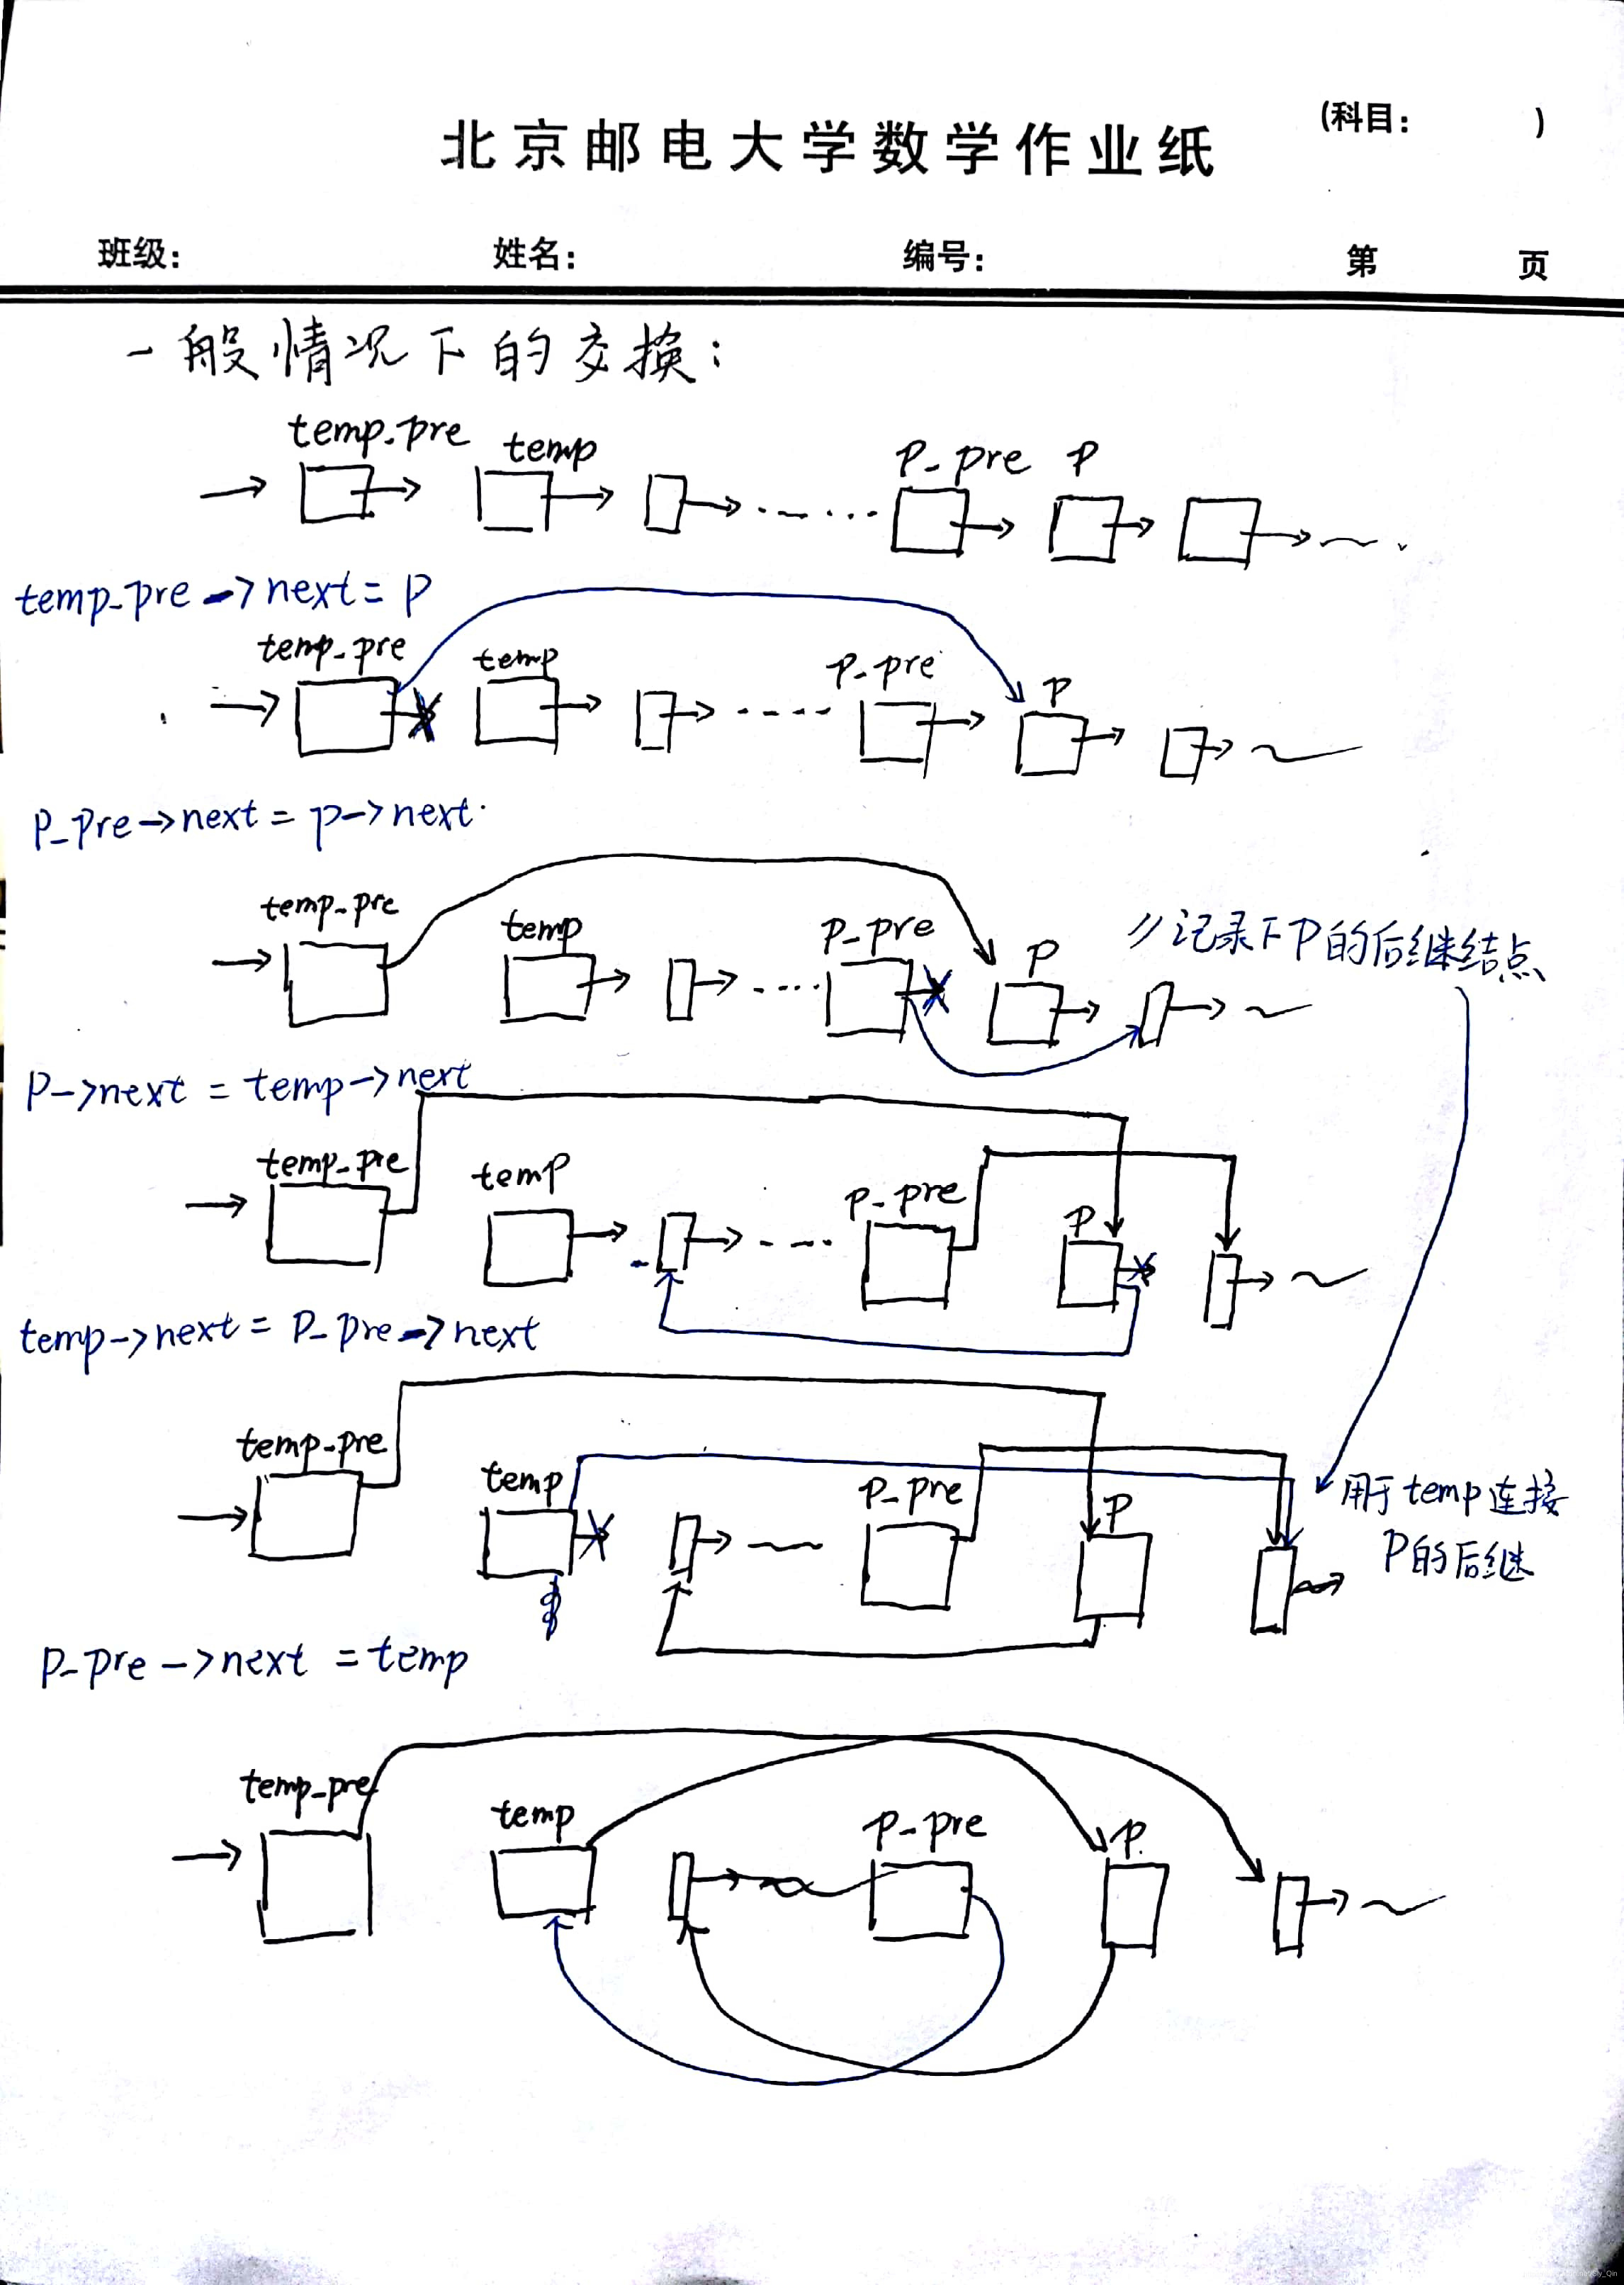 (科目:      )
北京邮电大学数学作业纸
班级:  姓名:  编号:  第  页
一般情况下的交换:
temp_pre  temp  P_pre  P
temp_pre->next=P
temp_pre  temp  P_pre  P
P_pre->next = p->next
temp_pre  temp  P_pre  P  //记录下P的后继结点
P->next = temp->next
temp_pre  temp  P_pre  P
temp->next = P_pre->next
temp_pre  temp  P_pre  P  用于temp连接
P的后继
P_pre->next = temp
temp_pre  temp  P_pre  P